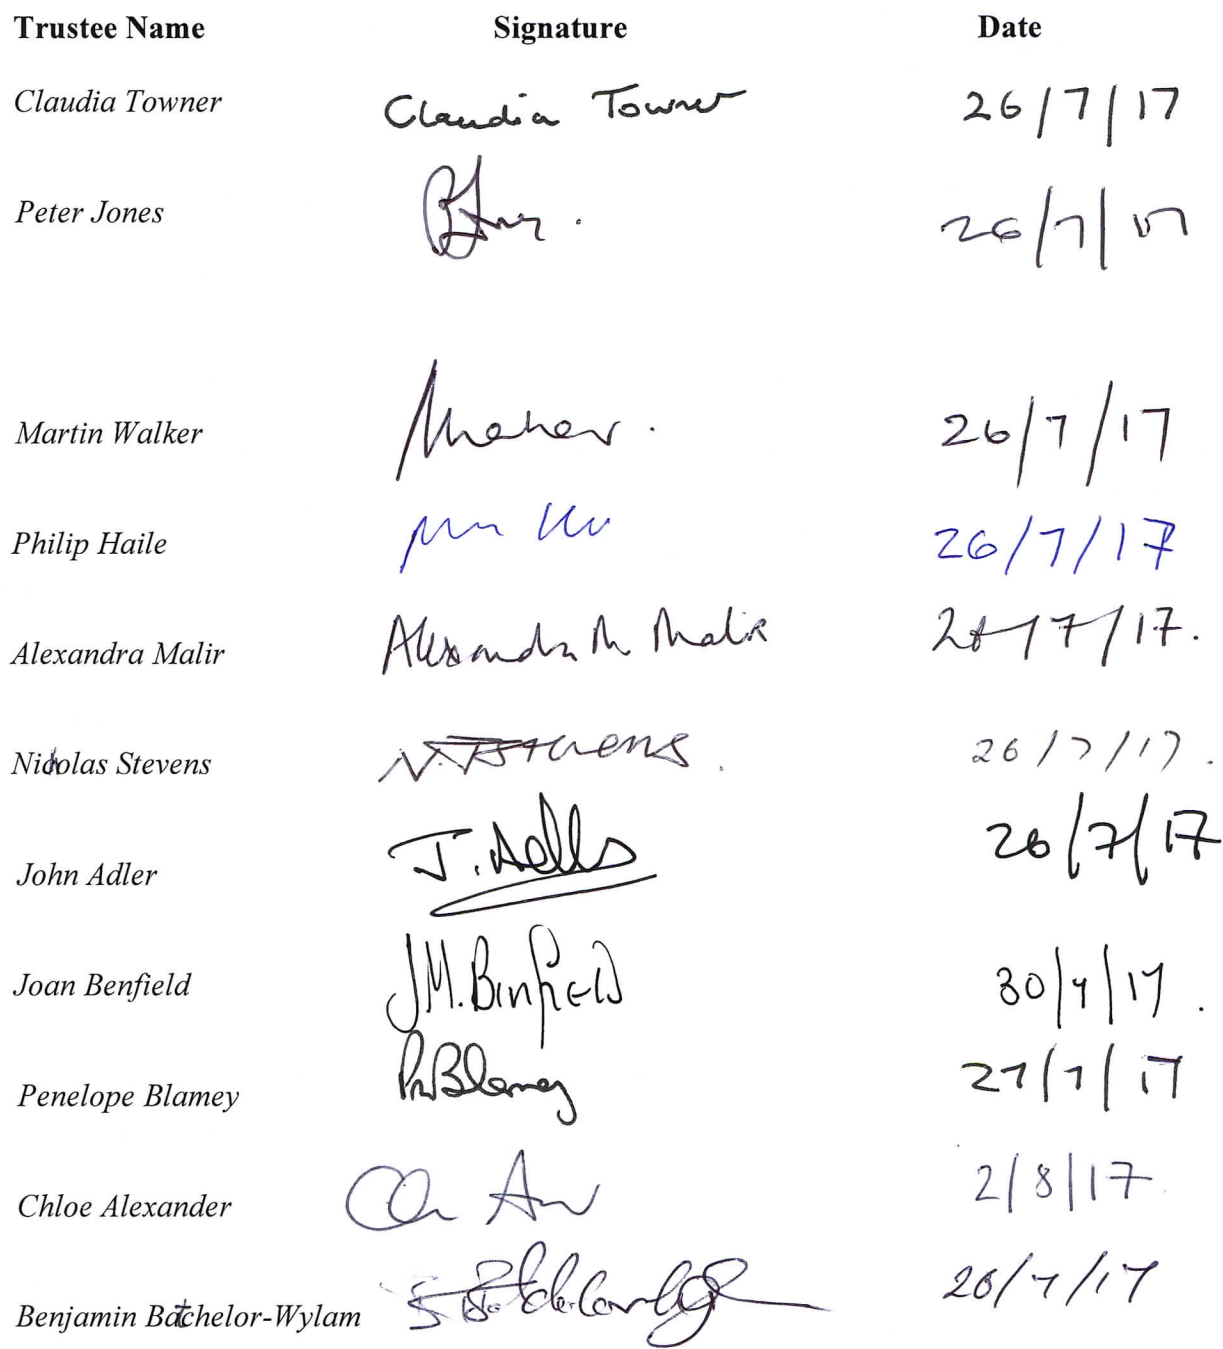 Trustee Name Signature Date
Claudia Towner Claudia Towner 26/7/17
Peter Jones 26/7/17
Martin Walker 26/7/17
Philip Haile 26/7/17
Alexandra Malir Alexandra M Malir 26/7/17.
Nicholas Stevens N. Stevens. 26/7/17.
John Adler J. Adler 26/7/17
Joan Benfield J M. Benfield 30/7/17.
Penelope Blamey Blamey 27/7/17
Chloe Alexander 2/8/17
Benjamin Batchelor-Wylam 26/7/17